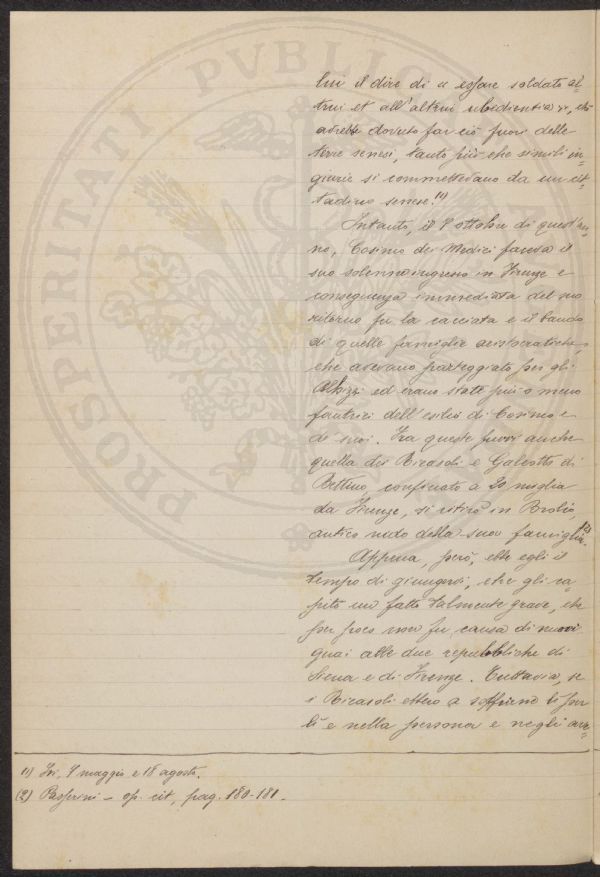 PROSPERITATI PVBLIC
lui il dire di « essere soldato al-
trui et all'altrui ubidientia », chè
avrebbe dovuto far ciò fuori delle
terre senesi, tanto più che simili in-
giurie si commettevano da un cit-
tadino senese. (1)
Intanto, il 9 ottobre di quest'an-
no, Cosimo dei Medici faceva il
suo solenne ingresso in Firenze e
conseguenza immediata del suo
ritorno fu la cacciata e il bando
di quelle famiglie aristocratiche,
che avevano parteggiato per gli
Albizzi ed erano state più o meno
fautrici dell'esilio di Cosimo e
de' suoi. Fra queste fuvvi anche
quella dei Ricasoli e Galeotto di
Bettino, confinato a 20 miglia
da Firenze, si ritirò in Brolio,
antico nido della sua famiglia. (2)
Appena, però, ebbe egli il
tempo di giungervi, che gli ca-
pitò un fatto talmente grave, che
per poco non fu causa di nuovi
guai alle due repubbliche di
Siena e di Firenze. Tuttavia, se
i Ricasoli ebbero a soffrirne
e nella persona e negli ave-
(1) Ivi, 9 maggio e 18 agosto.
(2) Passerini - op. cit, pag. 180-181.